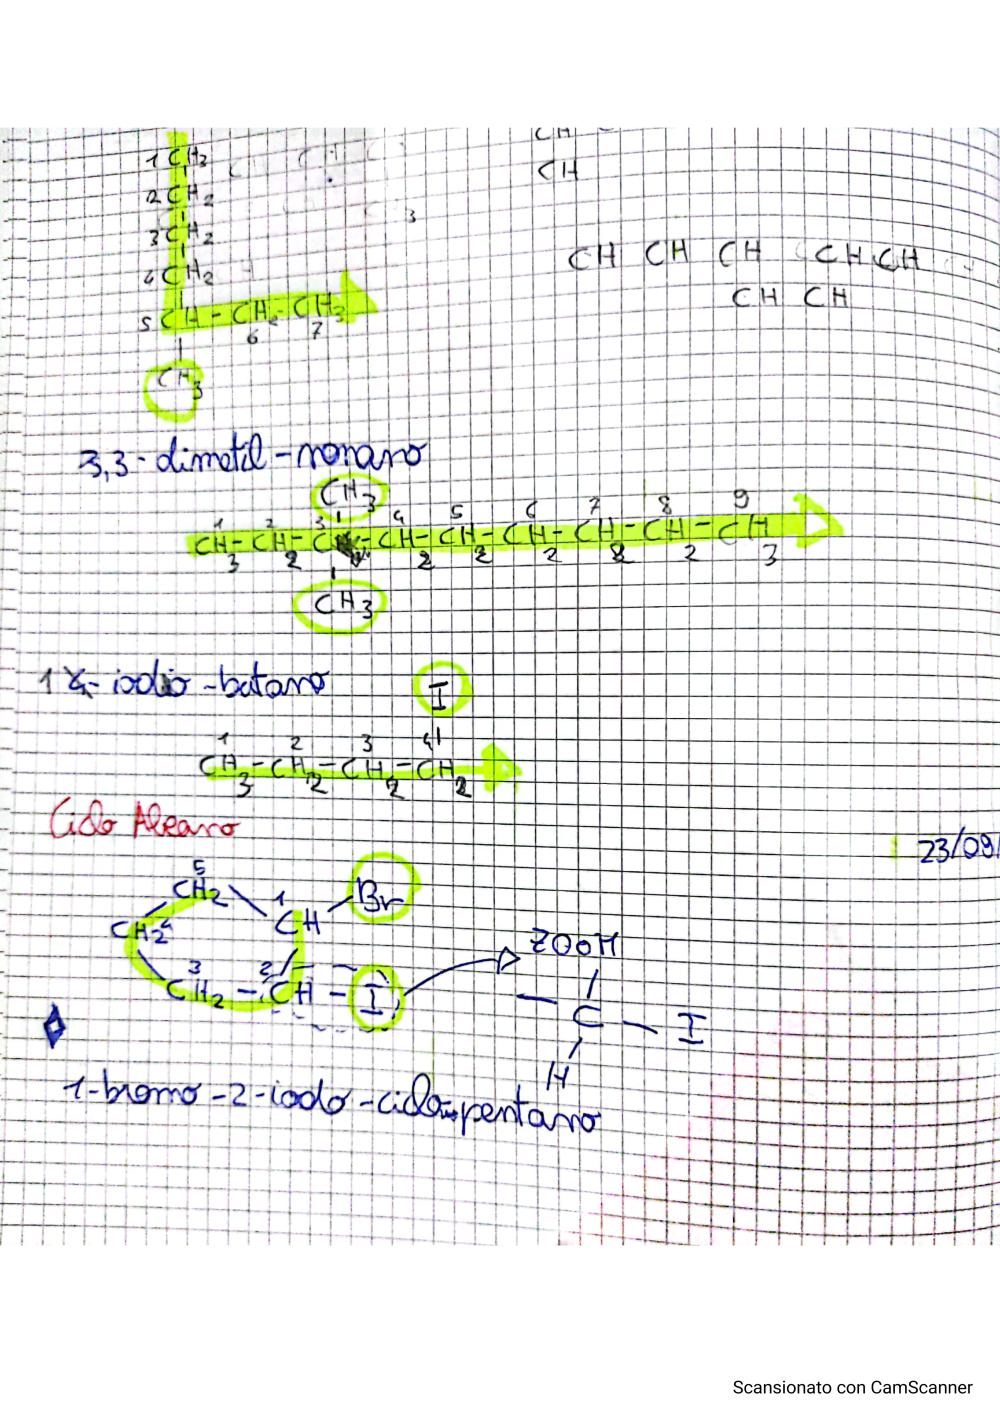 1 CH3
2 CH2
3 CH2
4 CH2
5 CH - CH2 - CH3
6 7
CH3
CH
CH
CH CH CH CH CH
CH CH
3,3 - dimetil - nonano
CH3
1 2 3 4 5 6 7 8 9
CH3 - CH2 - C - CH2 - CH2 - CH2 - CH2 - CH2 - CH3
CH3
1 - iodio - butano
I
1 2 3 4
CH3 - CH2 - CH2 - CH2
Ciclo Alcano
23/09
5 CH2
1 CH - Br
CH2 4
3 CH2 - 2 CH - I
ZOOH
C - I
H
1-bromo -2-iodo -ciclo-pentano
Scansionato con CamScanner